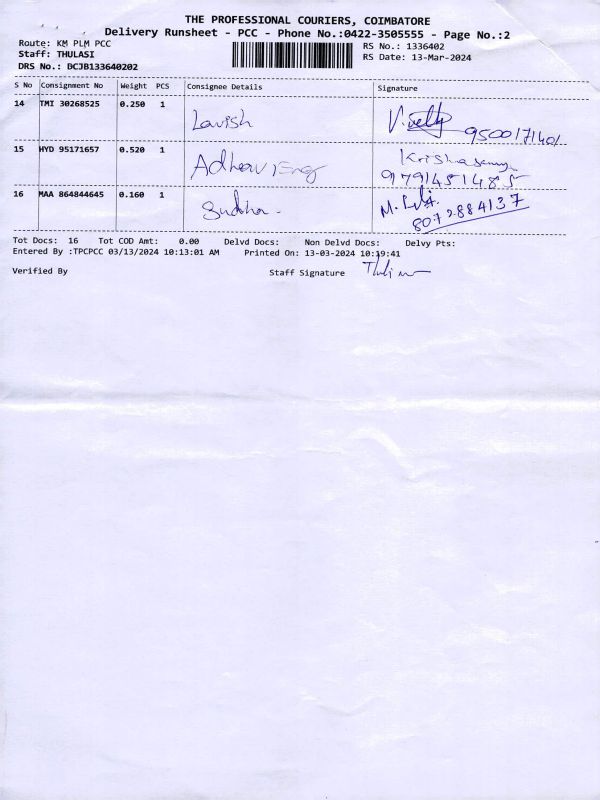 THE PROFESSIONAL COURIERS, COIMBATORE
Delivery Runsheet - PCC - Phone No.:0422-3505555 - Page No.:2
Route: KM PLM PCC
RS No.: 1336402
Staff: THULASI
RS Date: 13-Mar-2024
DRS No.: BCJB133640202
S No Consignment No Weight PCS Consignee Details Signature
14 TMI 30268525 0.250 1 Lavish
15 HYD 95171657 0.520 1 Krishasamy
9791451485
16 MAA 864844645 0.160 1 Sudha - M.
8072884137
Tot Docs: 16 Tot COD Amt: 0.00 Delvd Docs: Non Delvd Docs: Delvy Pts:
Entered By :TPCPCC 03/13/2024 10:13:01 AM Printed On: 13-03-2024 10:19:41
Verified By Staff Signature